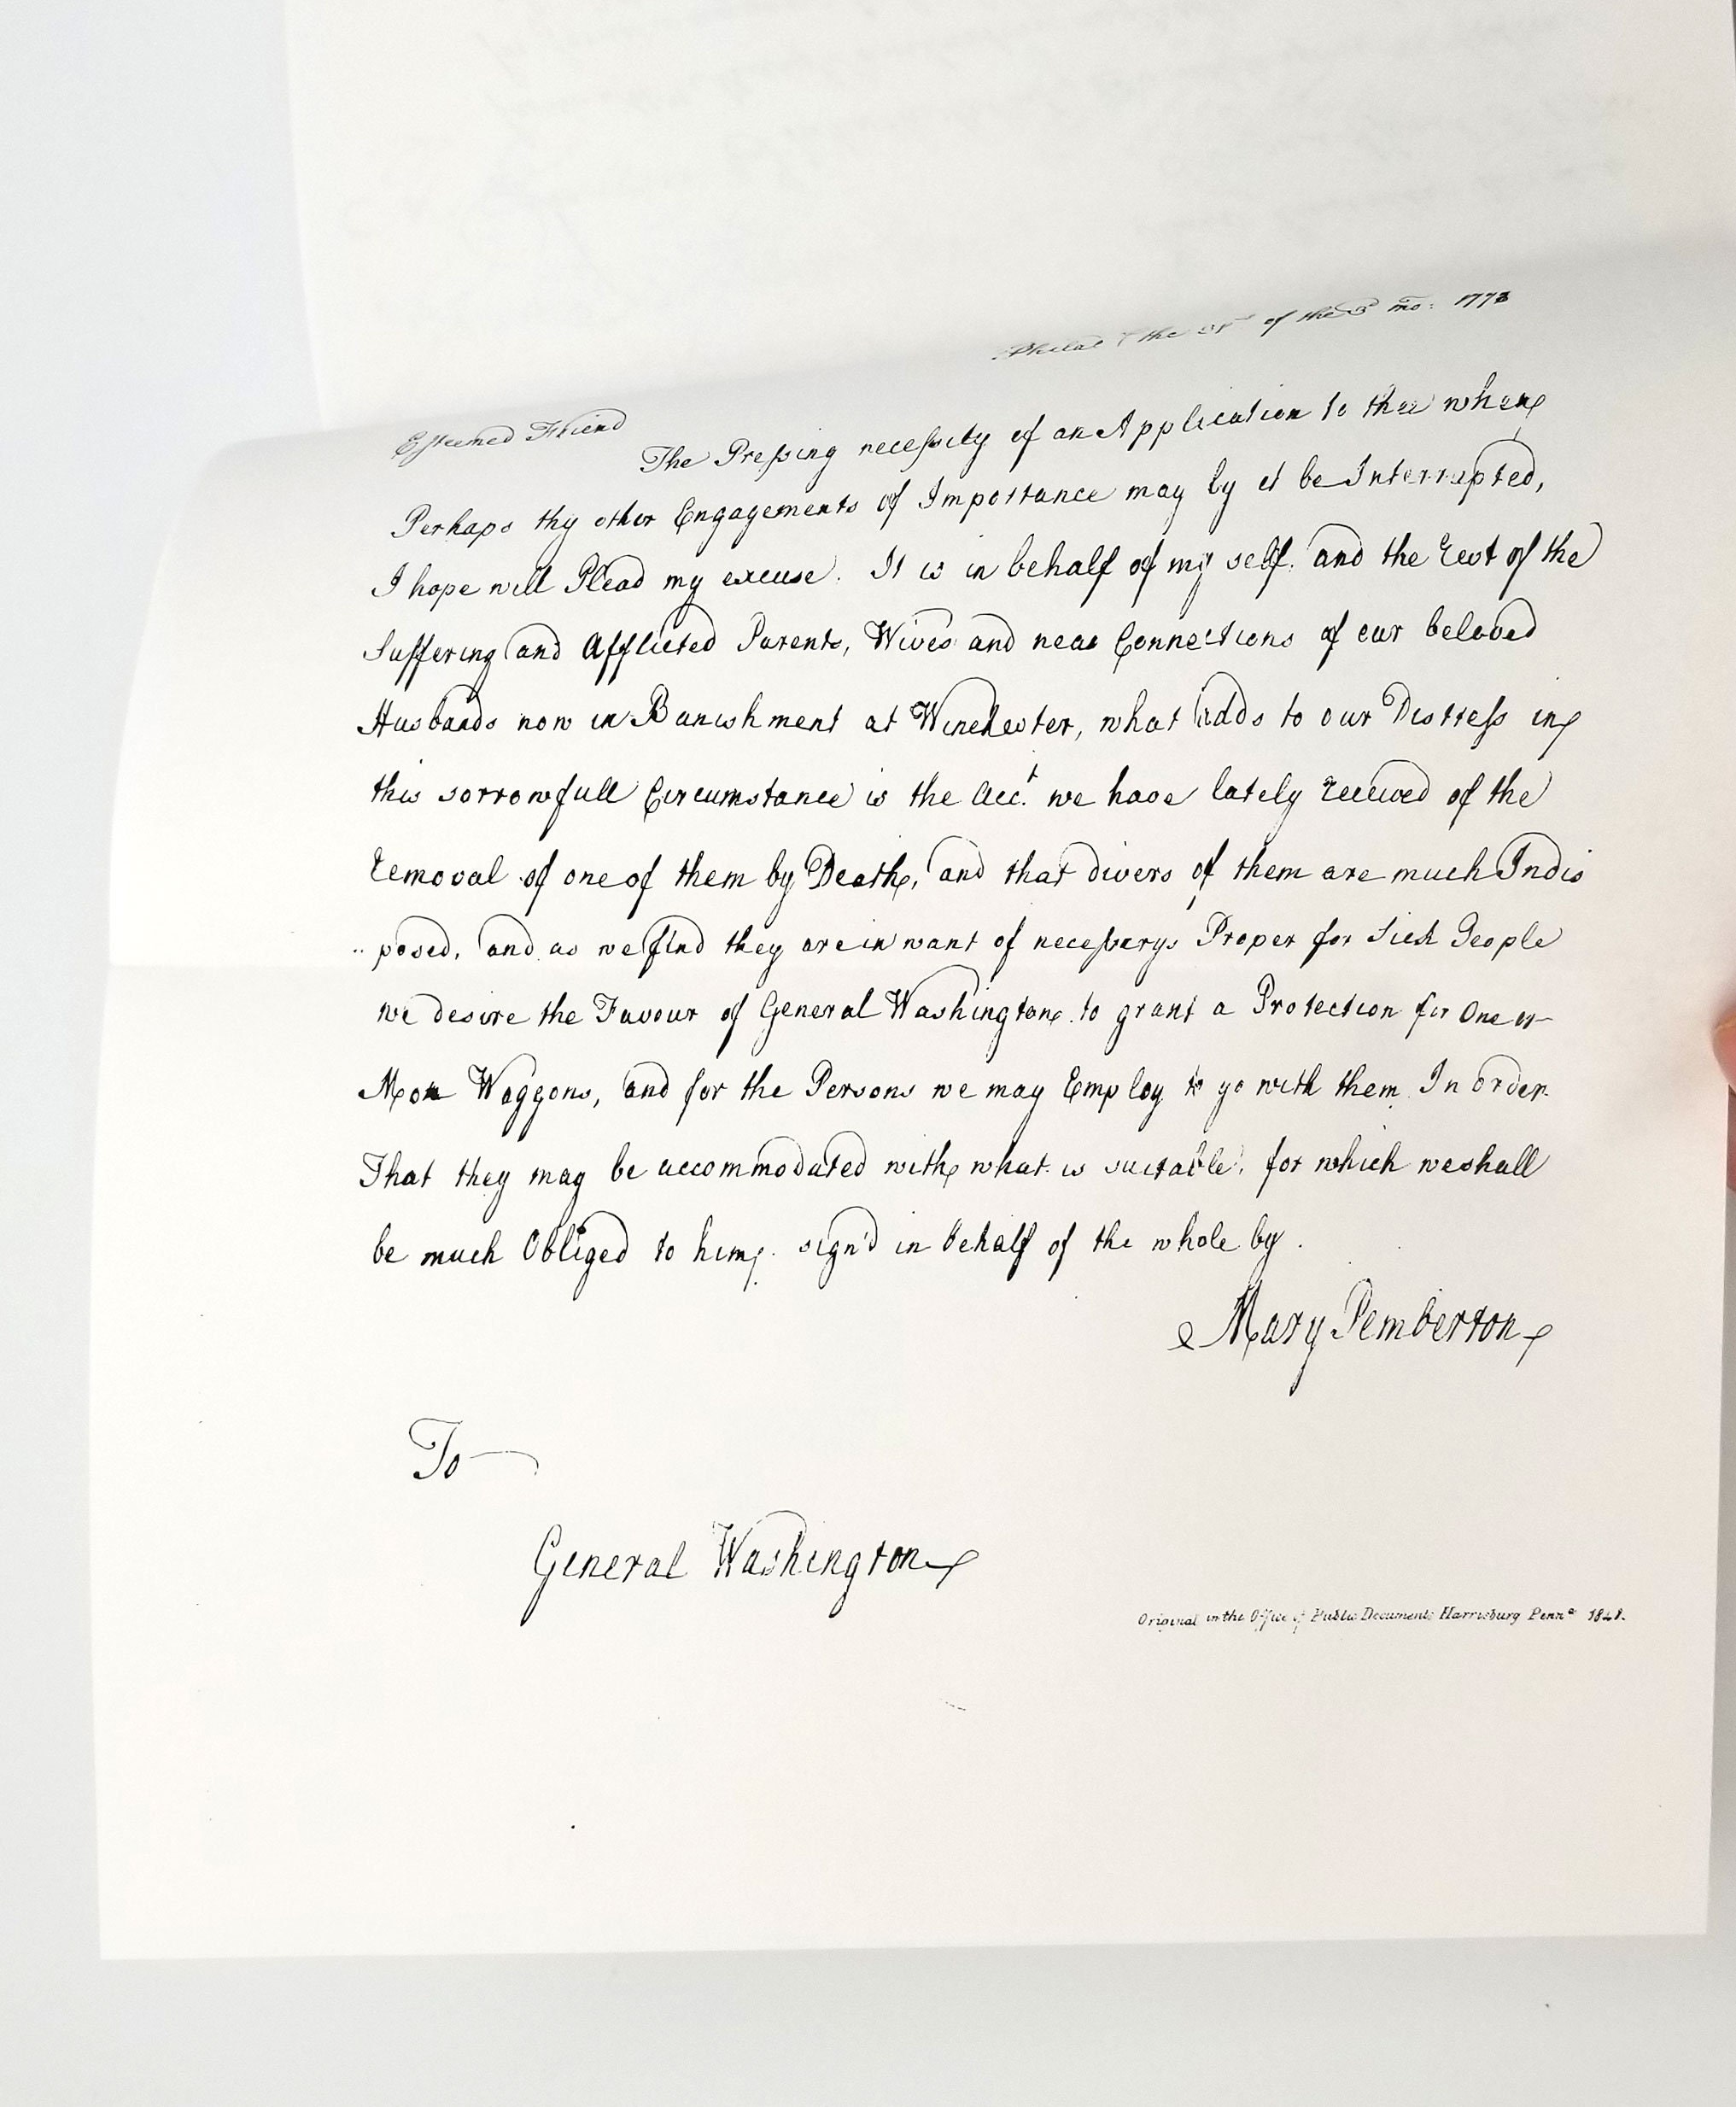 Philad^a the 31^st of the 3^d mo: 1778
Esteemed Friend
The Pressing necessity of an Application to thee when
Perhaps thy other Engagements of Importance may by it be Interrupted,
I hope will Plead my excuse. It is in behalf of my self. and the rest of the
Suffering and Afflicted Parents, Wives and near Connections of our beloved
Husbands now in Banishment at Winchester, what adds to our Distress in
this sorrowfull Circumstance is the Acc.^t we have lately received of the
removal of one of them by Death, and that divers of them are much Indis
posed, and as we find they are in want of necessarys Proper for Sick People
we desire the Favour of General Washington to grant a Protection for One or
More Waggons, and for the Persons we may Employ to go with them In order
That they may be accommodated with what is suitable, for which we shall
be much Obliged to him. sign'd in behalf of the whole by
Mary Pemberton
To
General Washington
Original in the Office of Public Documents Harrisburg Penn^a